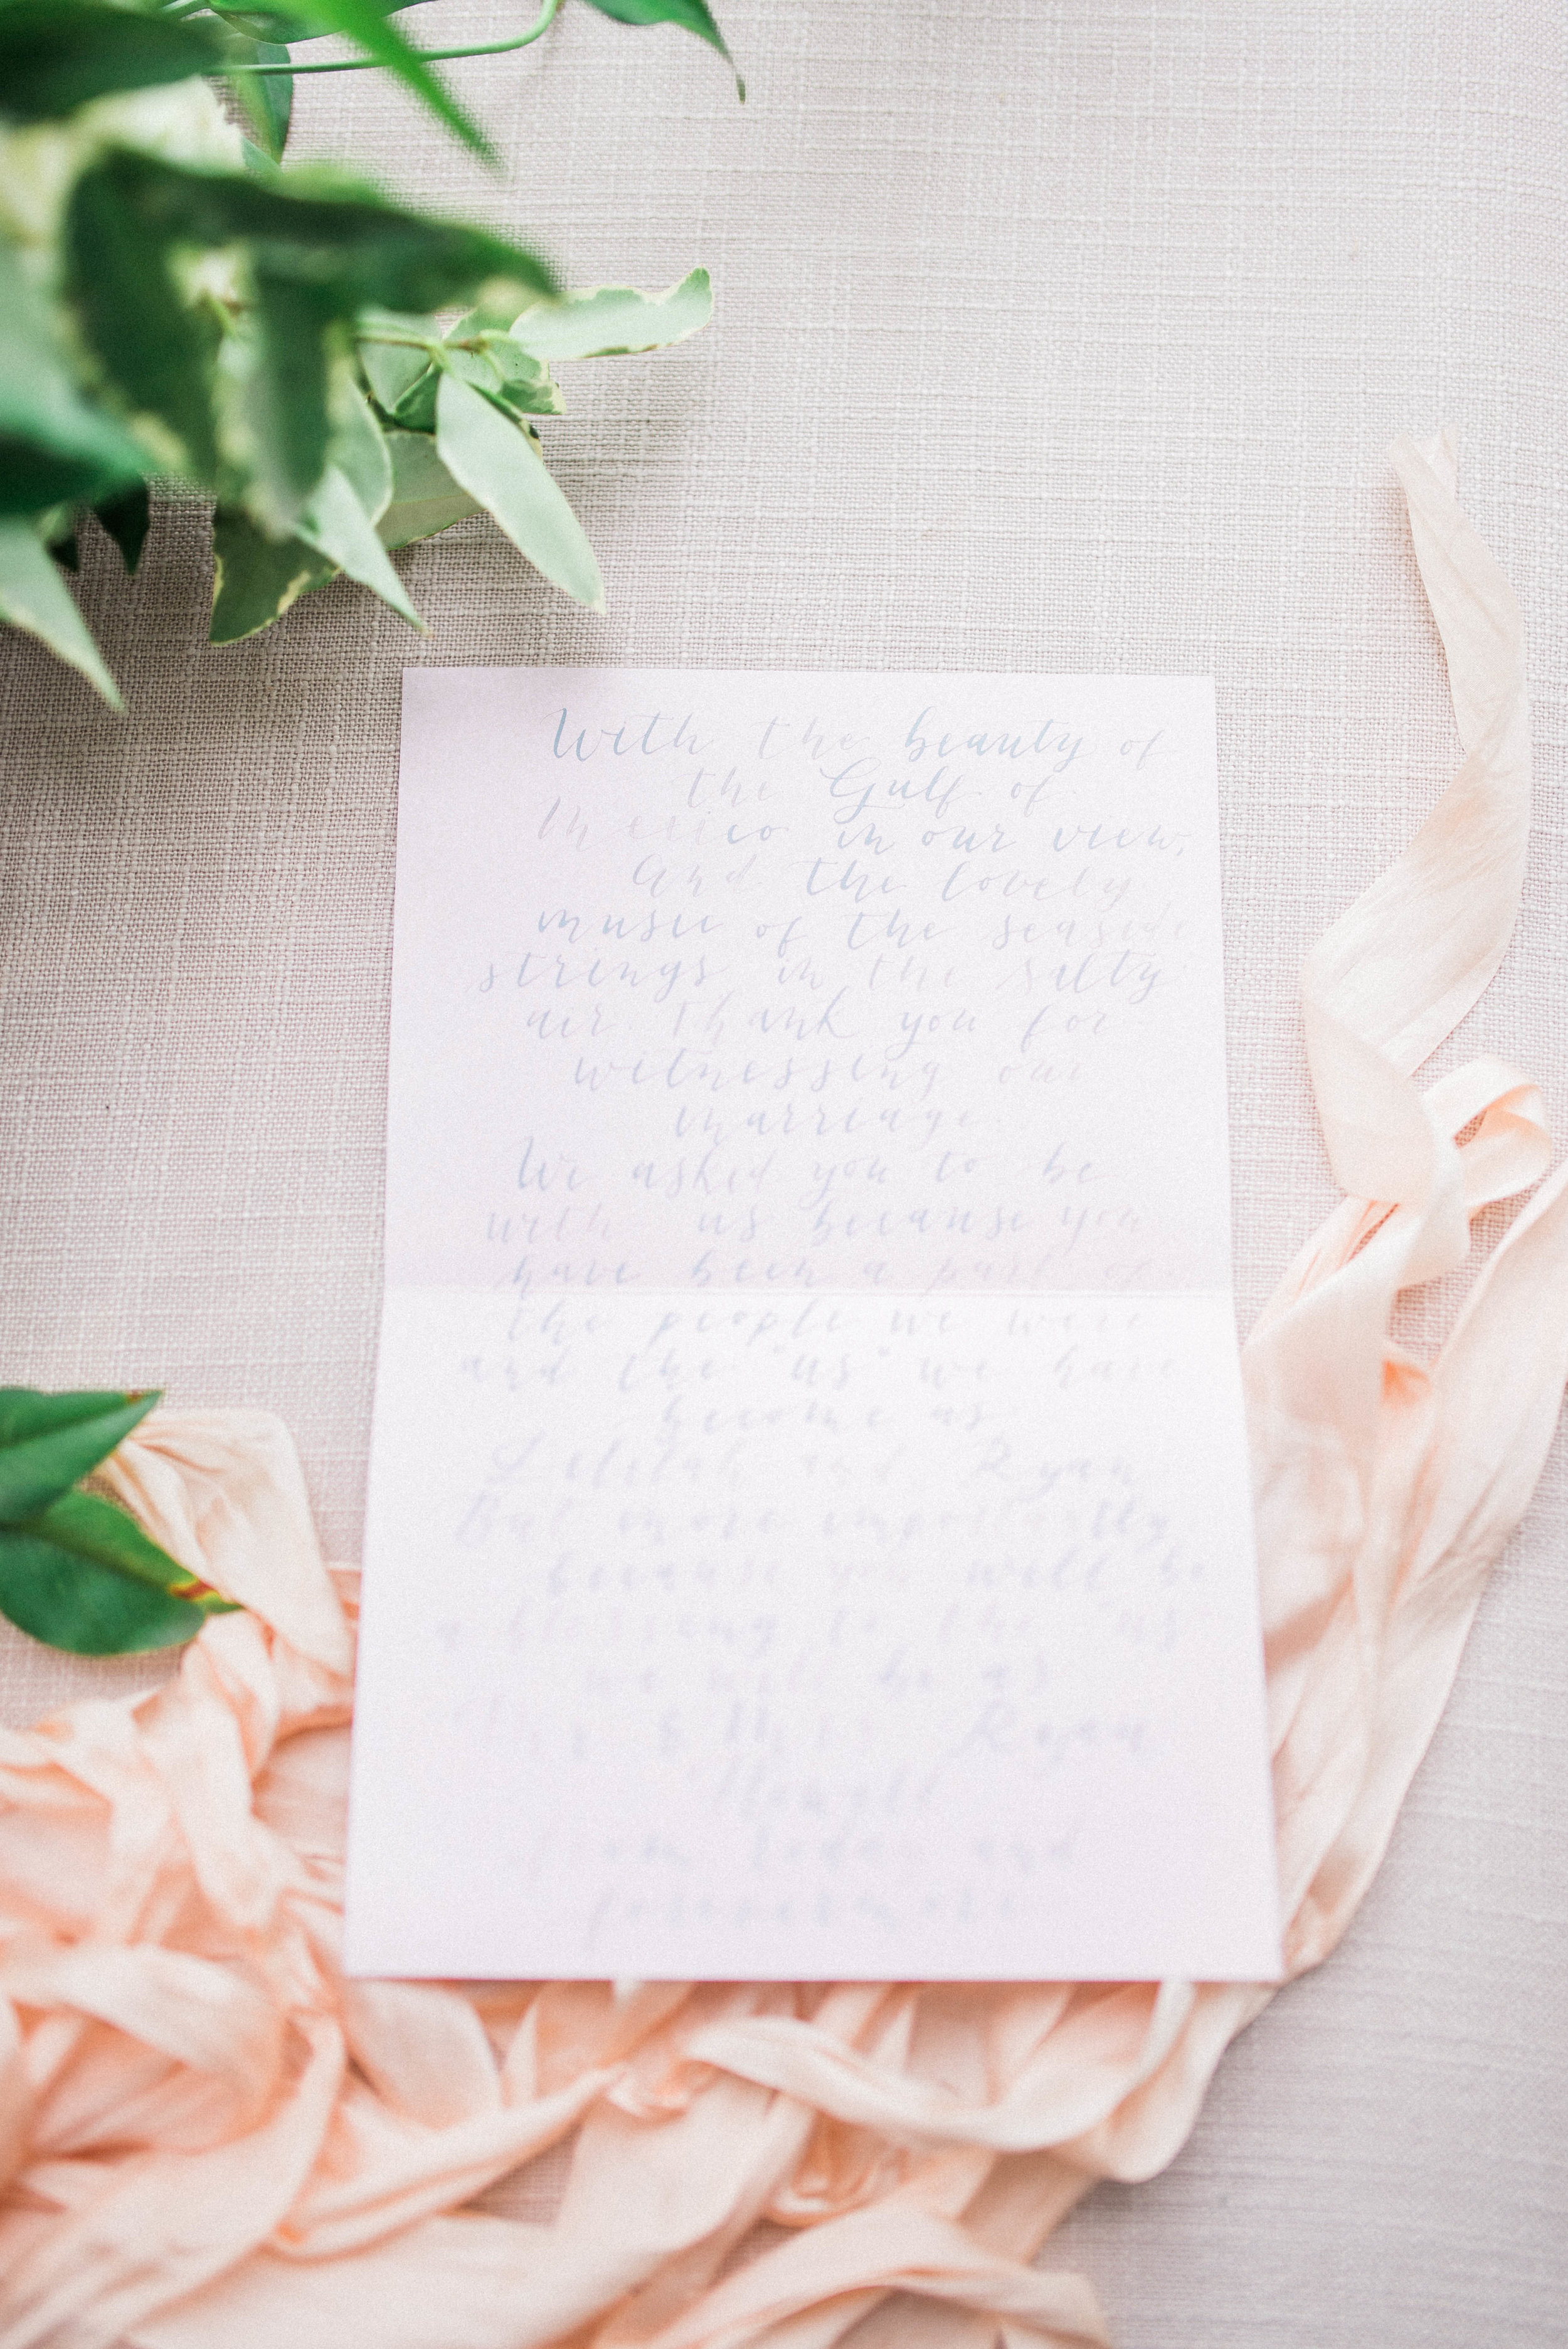 With the beauty of
the Gulf of
Mexico in our view,
And the lovely
music of the seaside
strings in the salty
air. Thank you for
witnessing our
marriage.
We asked you to be
with us because you
have been a part of
the people we were
and the "us" we have
become as
and Ryan
But more importantly
because you will be
a blessing to the "us"
we will be as
Ryan
and